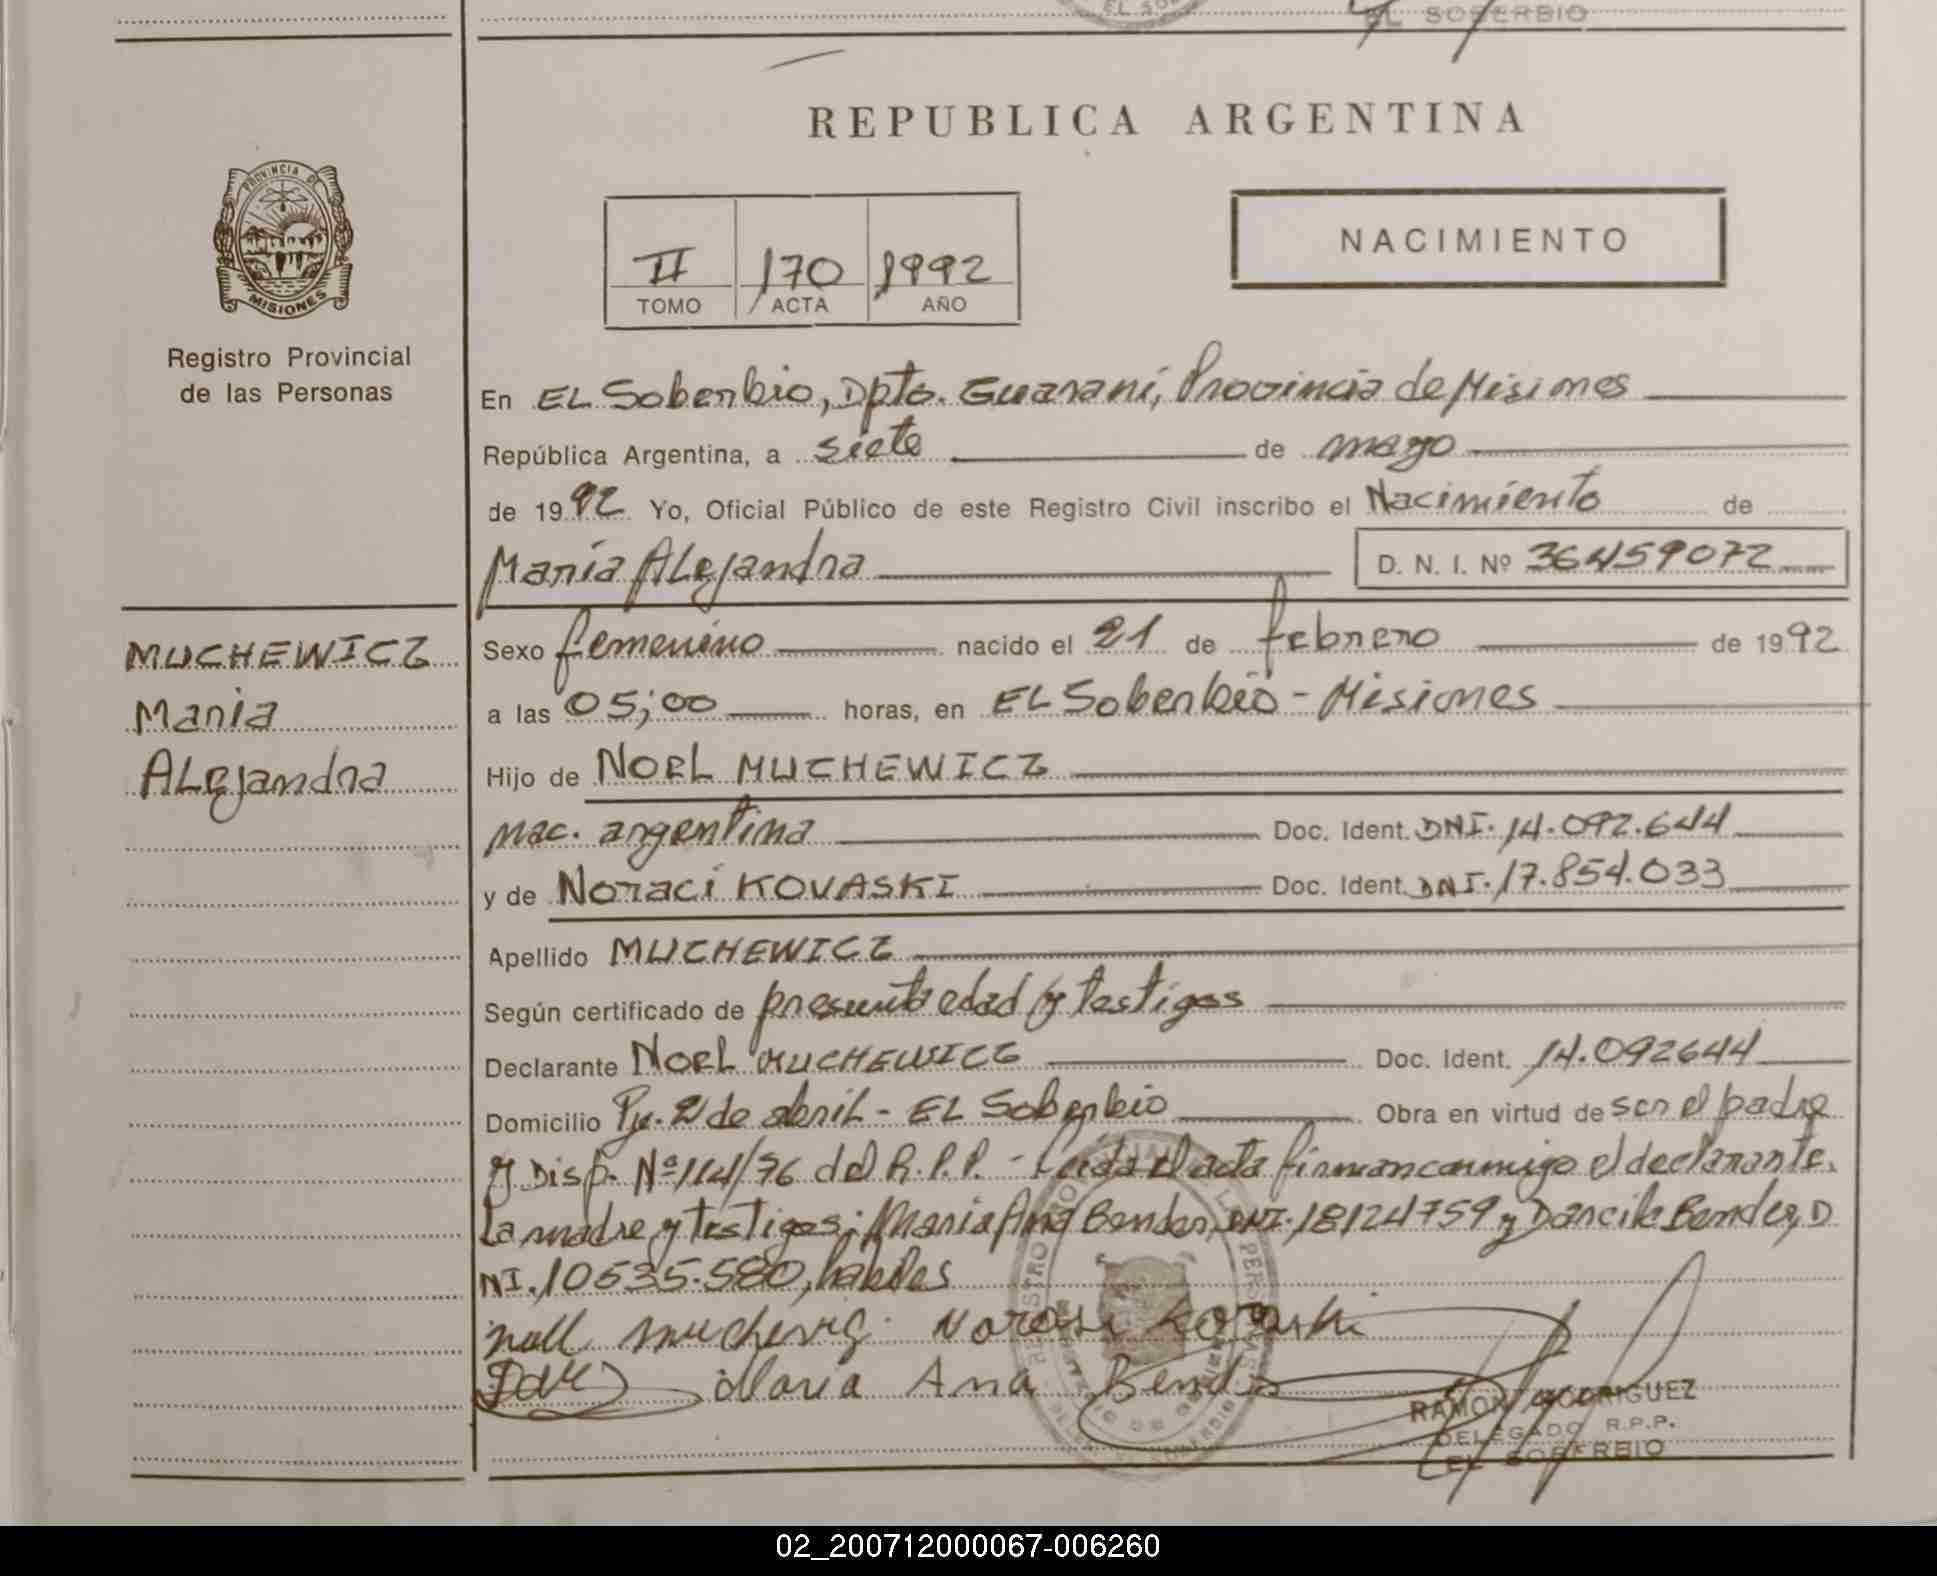 EL SOBERBIO
REPUBLICA ARGENTINA
PROVINCIA DE
MISIONES
Registro Provincial
de las Personas
II 170 1992
TOMO ACTA AÑO
NACIMIENTO
En EL Soberbio, Dpto. Guaraní, Provincia de Misiones
República Argentina, a siete de mayo
de 1992 Yo, Oficial Público de este Registro Civil inscribo el Nacimiento de
María Alejandra D. N. I. Nº 36459072
MUCHEWICZ
Maria
Alejandra
Sexo femenino nacido el 21 de febrero de 1992
a las 05;00 horas, en EL Soberbio - Misiones
Hijo de NOEL MUCHEWICZ
nac. argentina Doc. Ident. DNI. 14.092.644
y de Noraci KOVASKI Doc. Ident. DNI. 17.854.033
Apellido MUCHEWICZ
Según certificado de presunta edad y testigos
Declarante NOEL MUCHEWICZ Doc. Ident. 14.092644
Domicilio Pje. 2 de abril - EL Soberbio Obra en virtud de ser el padre
y Disp. Nº 114/76 del R.P.P. - Leida el acta firman conmigo el declarante,
la madre y testigos: Maria Ana Bender, DNI. 18124759 y Darcila Bender, D
NI. 10635.580, habiles
noll muchevig. Norasi Kovaski
Maria Ana Bender
RAMON RODRIGUEZ
DELEGADO R.P.P.
EL SOBERBIO
02_200712000067-006260